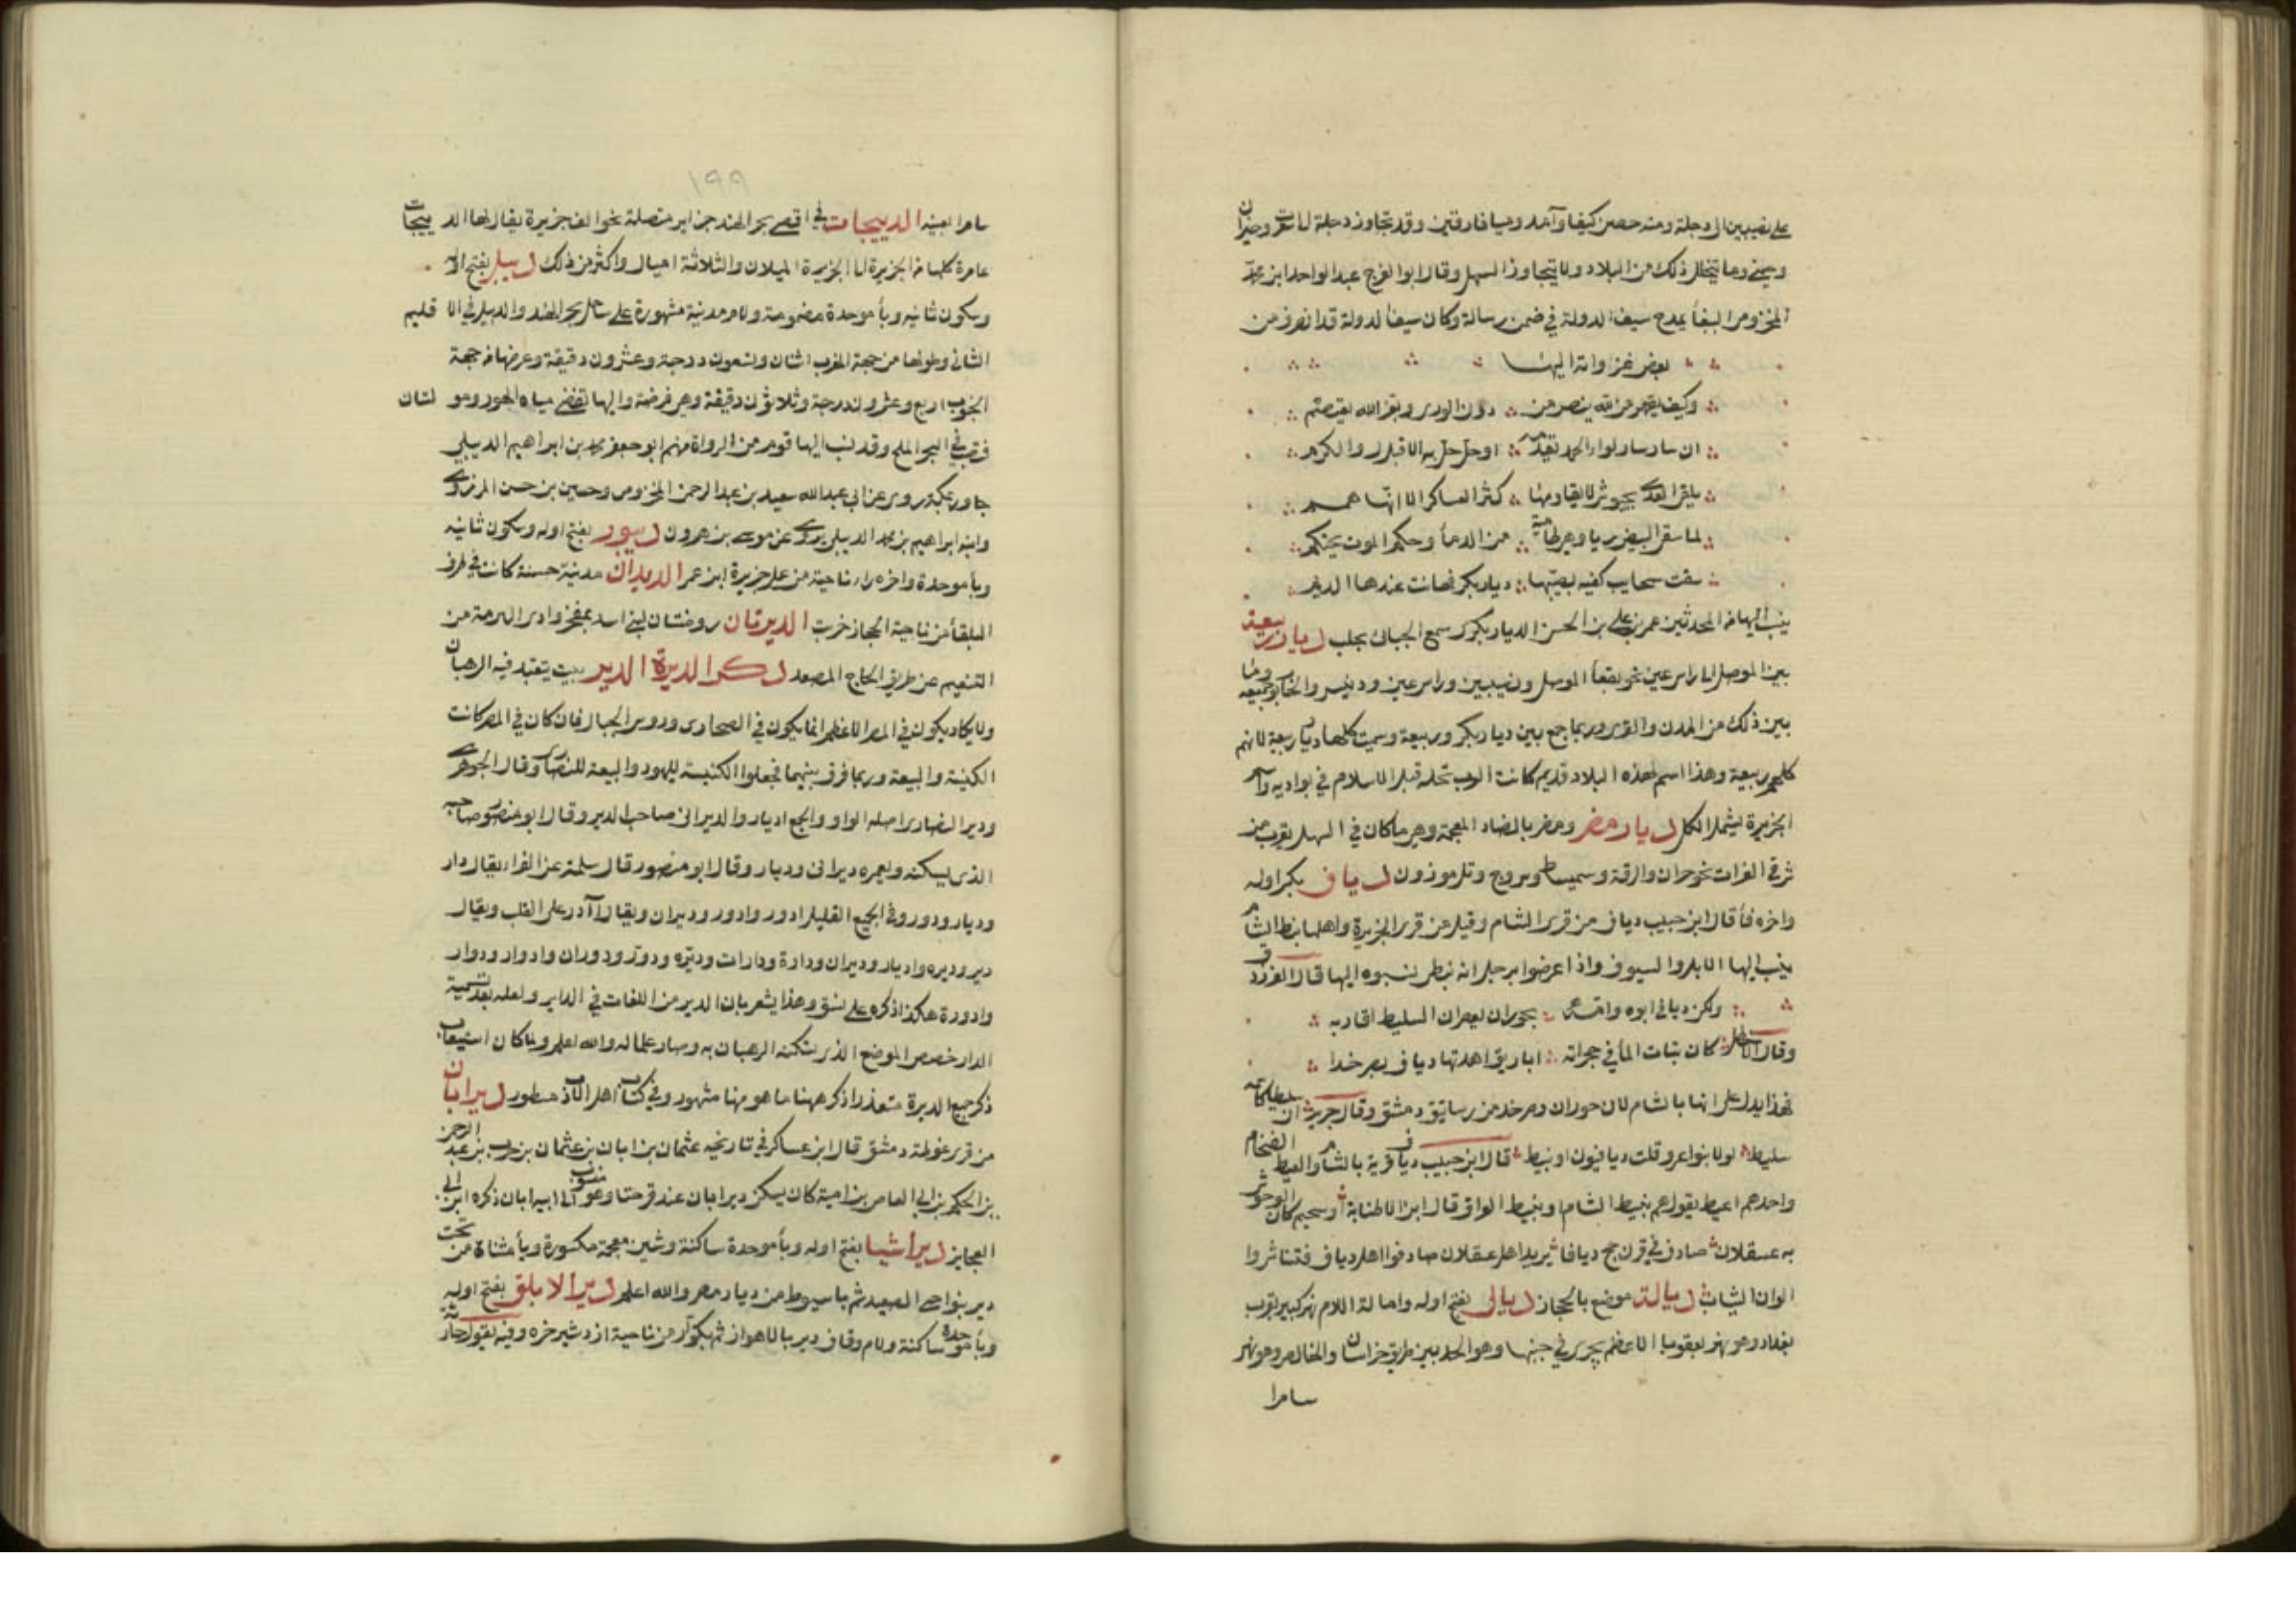 على نصيبين الى دجلة ومنه حصن كيفا وآمد وميافارقين وقد تجاوز دجلة الى سعرت وحيزان
وحيني وما تخلل ذلك من البلاد ولا يتجاوز السهل وقال ابو الفرج عبد الواحد ابن محمد
المخزومي الببغأ يمدح سيف الدولة في ضمن رسالة وكان سيف الدولة قد انصرف من
بعض غزواته اليها
وكيف يقهر من لله ينصر من دون الورى وبعز الله يعتصم
ان سار سار لواء الحمد يقدمه او حل حل به الاقبال والكرم
يلقى العدى بجيوش لا يقاومها كثر العساكر الا انها همم
لما سقى البيض ريا وهي ظامية من الدمأ وحكم الموت يحتكم
سقت سحايب كفيه بصيبها ديار بكر فهانت عندها الديم
ينسب اليها من المحدثين عمر بن علي بن الحسن الدياربكري سمع الجبائي بحلب ديار ربيعة
بين الموصل الى راس عين نحو بقعأ الموصل ونصيبين وراس عين ودنيسر والخابور جميعه وما
بين ذلك من المدن والقرى وربما جمع بين ديار بكر وربيعة وسميت كلها ديار ربيعة لانهم
كلهم ربيعة وهذا اسم لهذه البلاد قديم كانت العرب تحله قبل الاسلام في بواديه واسم
الجزيرة يشمل الكل ديار مضر ومضر بالضاد المعجمة وهي ما كان في السهل بقرب من
شرقي الفرات نحو حران والرقة وسميساط وسروج وتل موزون دياف بكسر اوله
واخره فأ قال ابن حبيب دياف من قرى الشام وقيل من قرى الجزيرة واهلها نبط الشام
ينسب اليها الابل والسيوف واذا عرضوا برجل انه نبطي نسبوه اليها قال الفرزدق
ولكن ديافي ابوه وامه بحوران يعصرن السليط اقاربه
وقال الاخطل كان بنات المأ في حجراته اباريق اهدتها دياف بصرخدا
فهذا يدل على انها بالشام لان حوران وصرخد من رساتيق دمشق وقال جرير ان سليطا كاسمه
سليط لولا بنو عمرو قلت ديافيون او نبيط قال ابن حبيب دياف قرية بالشام والعبط الضخام
واحدهم اعبط يقول هم نبيط الشام او نبيط العراق قال ابن الاطنابة او سحيم كان الوحوش
به عسقلان صادف في قرن حج ديافا يريد اهل عسقلان صادفوا اهل دياف فتناشروا
الوان الثياب ديالة موضع بالحجاز ديالى بفتح اوله وامالة اللام نهر كبير بقرب
بغداد وهو نهر بعقوبا الاعظم يجري في جنبها وهو الحد بين طريق خراسان والخالص وهو نهر
سامرا
١٩٩
سامرا بعينه الديبجات في اقصى بحر الهند جزاير متصلة نحو الف جزيرة يقال لها الديبجات
عامرة كلها من الجزيرة الى الجزيرة الميلان والثلاثة اميال واكثر من ذلك ديبل بفتح اوله
وسكون ثانيه وبأ موحدة مضمومة ولام مدينة مشهورة على ساحل بحر الهند والديبل في الاقليم
الثاني وطولها من جهة المغرب اثنان وتسعون درجة وعشرون دقيقة وعرضها من جهة
الجنوب اربع وعشرون درجة وثلاثون دقيقة وهي فرضة واليها تفضي مياه لهور ومولتان
فتصب في البحر الملح وقد نسب اليها قوم من الرواة منهم ابو جعفر محمد بن ابراهيم الديبلي
جاور بمكة روى عن ابي عبد الله سعيد بن عبد الرحمن المخزومي وحسين بن حسن المروزي
وابنه ابراهيم بن محمد الديبلي يروي عن موسى بن هرون ديبور بفتح اوله وسكون ثانيه
وبأ موحدة واخره راء ناحية من عمل جزيرة ابن عمر الديدان مدينة حسنة كانت في طرف
البلقأ من ناحية الحجاز خربت الديرتان روضتان لبني اسد بمفجر وادي الرمة من
التنعيم عن طريق الحاج المصعد ذكر الديرة الدير بيت يتعبد فيه الرهبان
ولا يكاد يكون في المصر الاعظم انما يكون في الصحارى وروس الجبال فان كان في المصر كانت
الكنيسة والبيعة وربما فرق بينهما فجعلوا الكنيسة لليهود والبيعة للنصارى وقال الجوهري
ودير النصارى اصله الواو والجمع اديار والديراني صاحب الدير وقال ابو منصور صاحبه
الذي يسكنه ويعمره ديراني وديار وقال ابو منصور قال سلمة عن الفراء يقال دار
وديار ودور وفي الجمع القليل ادور وادور وديران ويقال آدر على القلب ويقال
دير وديره واديار وديران ودارة ودارات وديره ودور ودوران وادوار ودوار
وادورة هكذا ذكره على نسق وهذا يشعر بان الدير من اللغات في الدار ولعله بعد تسمية
الدار خصص الموضع الذي يسكنه الرهبان به وصار علما له والله اعلم ولما كان استيعاب
ذكر جميع الديرة متعذرا ذكرهنا ما هو منها مشهور وفي كتب اهل الادب مسطور دير ابان
من قرى غوطة دمشق قال ابن عساكر في تاريخه عثمان بن ابان بن عثمان بن حرب بن عبد الرحمن
بن الحكم بن ابي العاص بن امية كان يسكن دير ابان عند قرحتا وهو منسوب الى ابيه ابان ذكره ابن ابي
العجايز دير ابشيا بفتح اوله وبأ موحدة ساكنة وشين معجمة مكسورة ويأ مثناة من تحت
دير بنواحي الصعيد ثم باسيوط من ديار مصر والله اعلم دير الابلق بفتح اوله
وبأ موحدة ساكنة ولام وقاف دير بالاهواز ثم بكوار من ناحية اردشير خره وفيه يقول حارثة